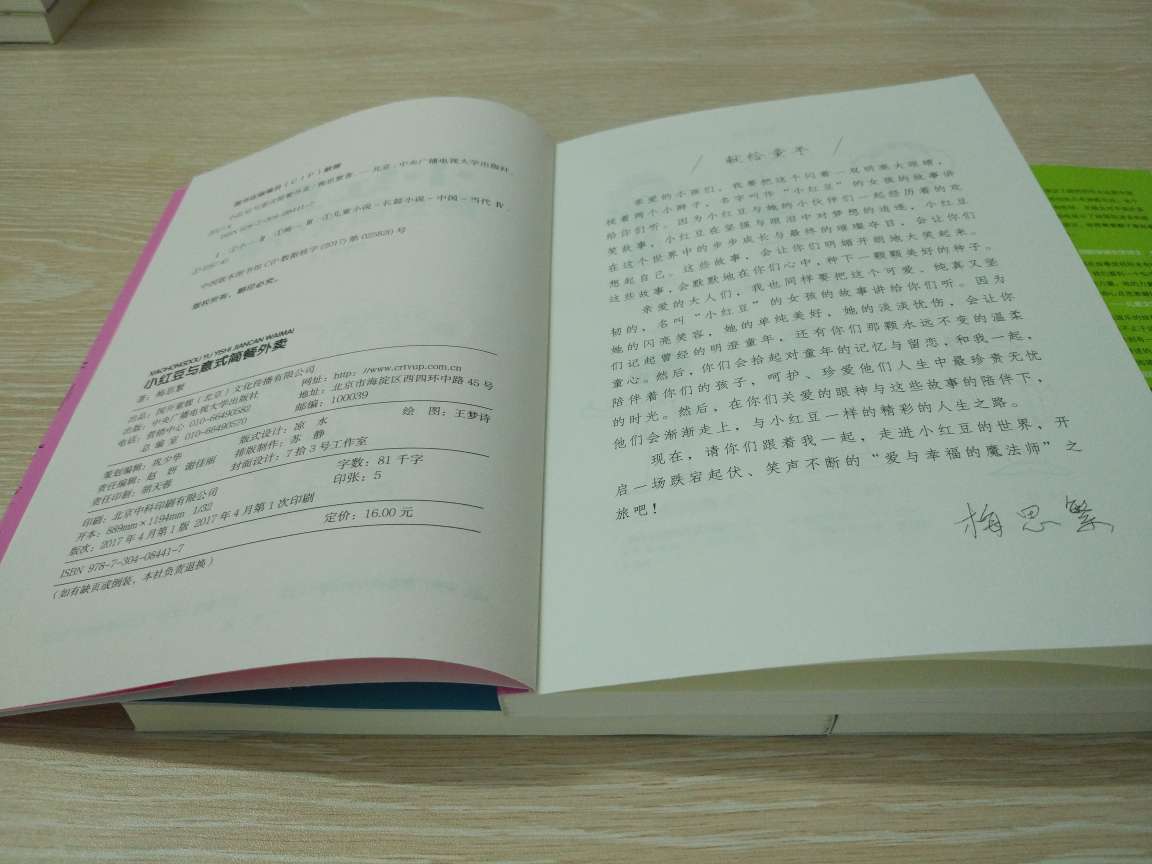 图书在版编目(CIP)数据
小红豆与意式简餐外卖/梅思繁著. —北京:中央广播电视大学出版社
2017.4
ISBN 978-7-304-08441-7
Ⅰ. ①小… Ⅱ. ①梅… Ⅲ. ①儿童小说-长篇小说-中国-当代 Ⅳ.
中国版本图书馆CIP数据核字(2017)第025820号
版权所有,翻印必究。
XIAOHONGDOU YU YISHI JIANCAN WAIMAI
小红豆与意式简餐外卖
著:梅思繁
出品:国开童媒(北京)文化传播有限公司
出版:中央广播电视大学出版社 网址:http://www.crtvup.com.cn
电话:营销中心 010-66490582 地址:北京市海淀区西四环中路45号
总编室 010-68490570 邮编:100039
版式设计:凉 水 绘 图:王梦诗
责任编辑:赵 妍 谢佳丽 排版制作:苏 静
责任印制:胡天蓉 封面设计:7拾3号工作室
印刷:北京中科印刷有限公司 字数:81千字
开本:889mm×1194mm 1/32 印张:5
版次:2017年4月第1版 2017年4月第1次印刷
定价:16.00元
ISBN 978-7-304-08441-7
(如有缺页或倒装,本社负责退换)
献给童年
亲爱的小孩们,我要把这个闪着一双明亮大眼睛,
扰着两个小辫子,名字叫作“小红豆”的女孩的故事讲
给你们听。因为小红豆与她的小伙伴们一起经历着的欢
笑故事,小红豆在坚强与眼泪中对梦想的追逐,小红豆
在这个世界中的步步成长与最终的璀璨夺目,会让你们
想起自己。这些故事,会让你们明媚开朗地大笑起来。
这些故事,会默默地在你们心中,种下一颗颗美好的种子。
亲爱的大人们,我也同样要把这个可爱、纯真又坚
韧的,名叫“小红豆”的女孩的故事讲给你们听。因为
她的闪亮笑容,她的单纯美好,她的淡淡忧伤,会让你
们记起曾经的明澄童年,还有你们那颗永远不变的温柔
童心。然后,你们会拾起对童年的记忆与留恋,和我一起,
陪伴着你们的孩子,呵护、珍爱他们人生中最珍贵无忧
的时光。然后,在你们关爱的眼神与这些故事的陪伴下,
他们会渐渐走上,与小红豆一样的精彩的人生之路。
现在,请你们跟着我一起,走进小红豆的世界,开
启一场跌宕起伏、笑声不断的“爱与幸福的魔法师”之
旅吧!
梅思繁